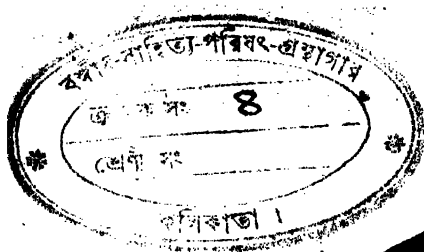 বঙ্গীয়-সাহিত্য-পরিষৎ-গ্রন্থাগার
সং 8
শ্রেণী সং
কলিকাতা ।